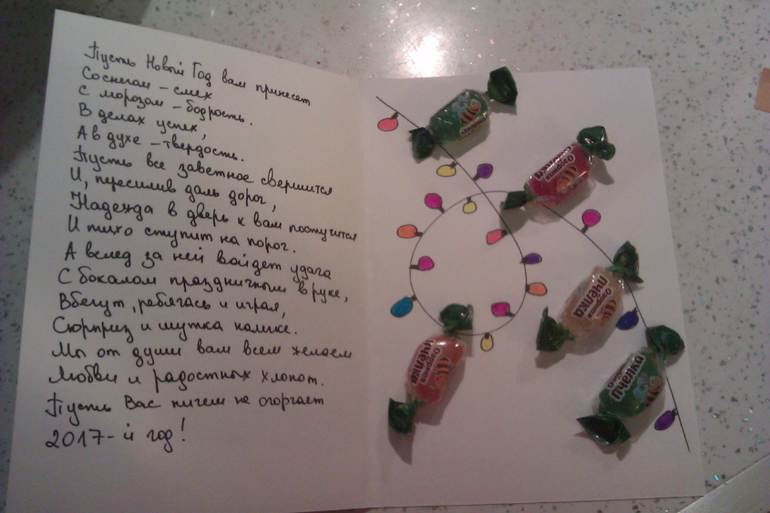 Пусть Новый Год вам принесёт
Со снегом – смех
С морозом – бодрость.
В делах успех,
А в духе – твердость.
Пусть все заветное свершится
И, пересилив даль дорог,
Надежда в дверь к вам постучится
И тихо ступит на порог.
А вслед за ней войдет удача
С бокалом праздничным в руке,
Вбегут, ребячась и играя,
Сюрприз и шутка налегке.
Мы от души вам всем желаем
Любви и радостных хлопот.
Пусть Вас ничем не огорчает
2017-й год!
Озорная
пчёлка
Озорная
пчёлка
Озорная
пчёлка
пчёлка